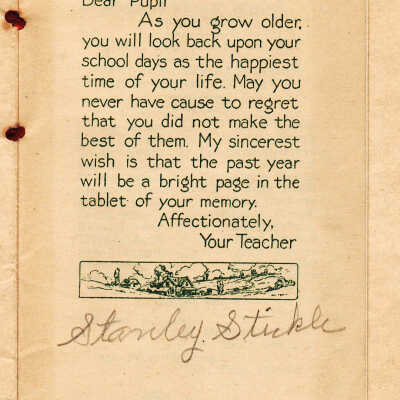 Dear Pupil
As you grow older,
you will look back upon your
school days as the happiest
time of your life. May you
never have cause to regret
that you did not make the
best of them. My sincerest
wish is that the past year
will be a bright page in the
tablet of your memory.
Affectionately,
Your Teacher
Stanley Stickle